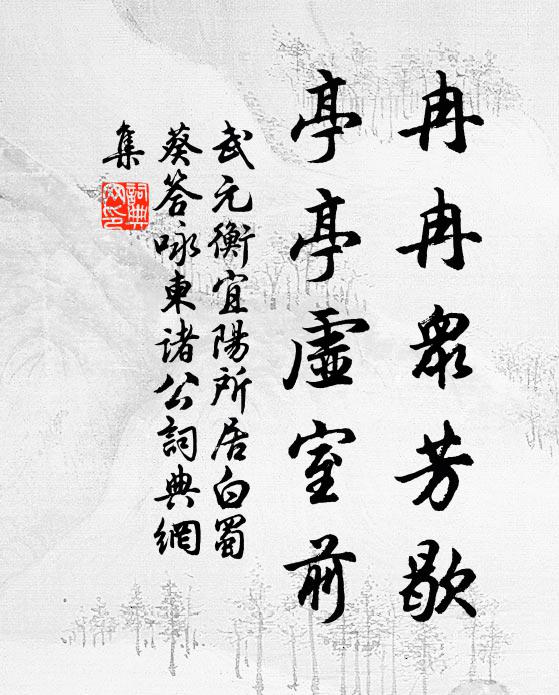 冉冉眾芳歇
亭亭虛室前
武元衡宜陽所居白蜀
葵答咏東諸公詞典網
集
詞典網印